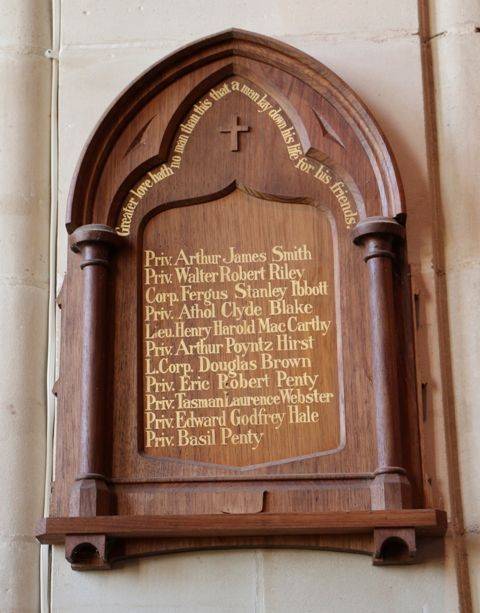 Greater love hath no man than this that a man lay down his life for his friends.
Priv. Arthur James Smith
Priv. Walter Robert Riley
Corp. Fergus Stanley Ibbott
Priv. Athol Clyde Blake
Lieu. Henry Harold MacCarthy
Priv. Arthur Poyntz Hirst
L.Corp. Douglas Brown
Priv. Eric Robert Penty
Priv. Tasman Laurence Webster
Priv. Edward Godfrey Hale
Priv. Basil Penty